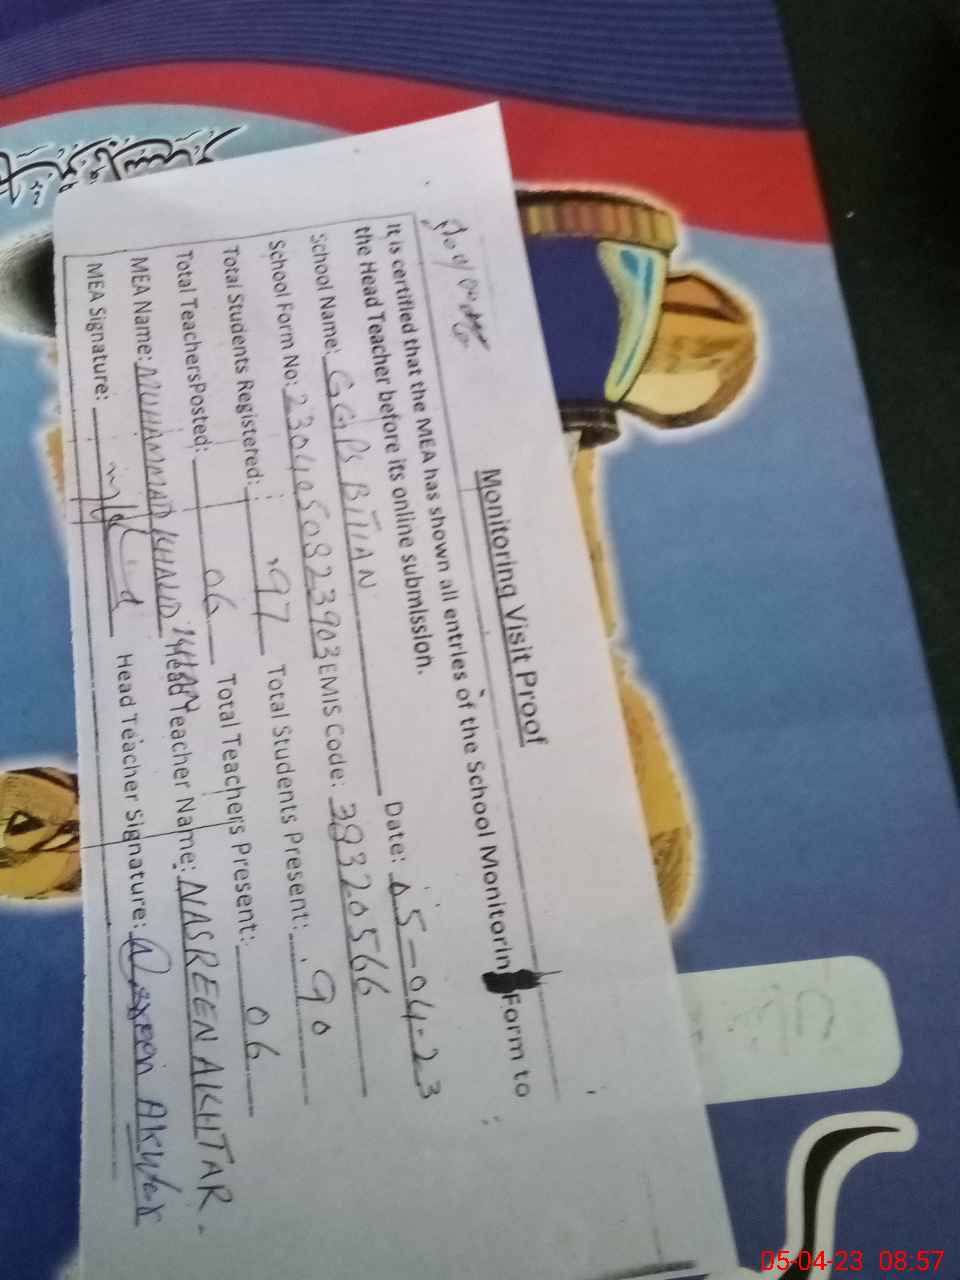 Monitoring Visit Proof
It is certified that the MEA has shown all entries of the School Monitorin Form to
the Head Teacher before its online submission.
School Name: GGPS BITIAN Date: 05-04-23
School Form No: 23040509 23903 EMIS Code: 39320566
Total Students Registered: 97 Total Students Present: 90
Total TeachersPosted: 06 Total Teachers Present: 06
MEA Name: MUHAMMAD KHALID KHAN Head Teacher Name: NASREEN AKHTAR
MEA Signature: Head Teacher Signature: Nasreen Akhtar
05-04-23 08:57